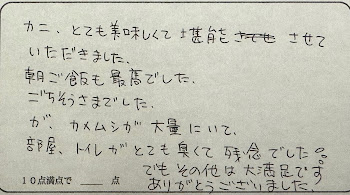 カニ、とても美味しくて堪能させて
いただきました。
朝ご飯も最高でした。
ごちそうさまでした。
が、カメムシが大量にいて、
部屋、トイレがとても臭くて残念でした。
でもその他は大満足です
ありがとうございました。
10点満点で ____ 点